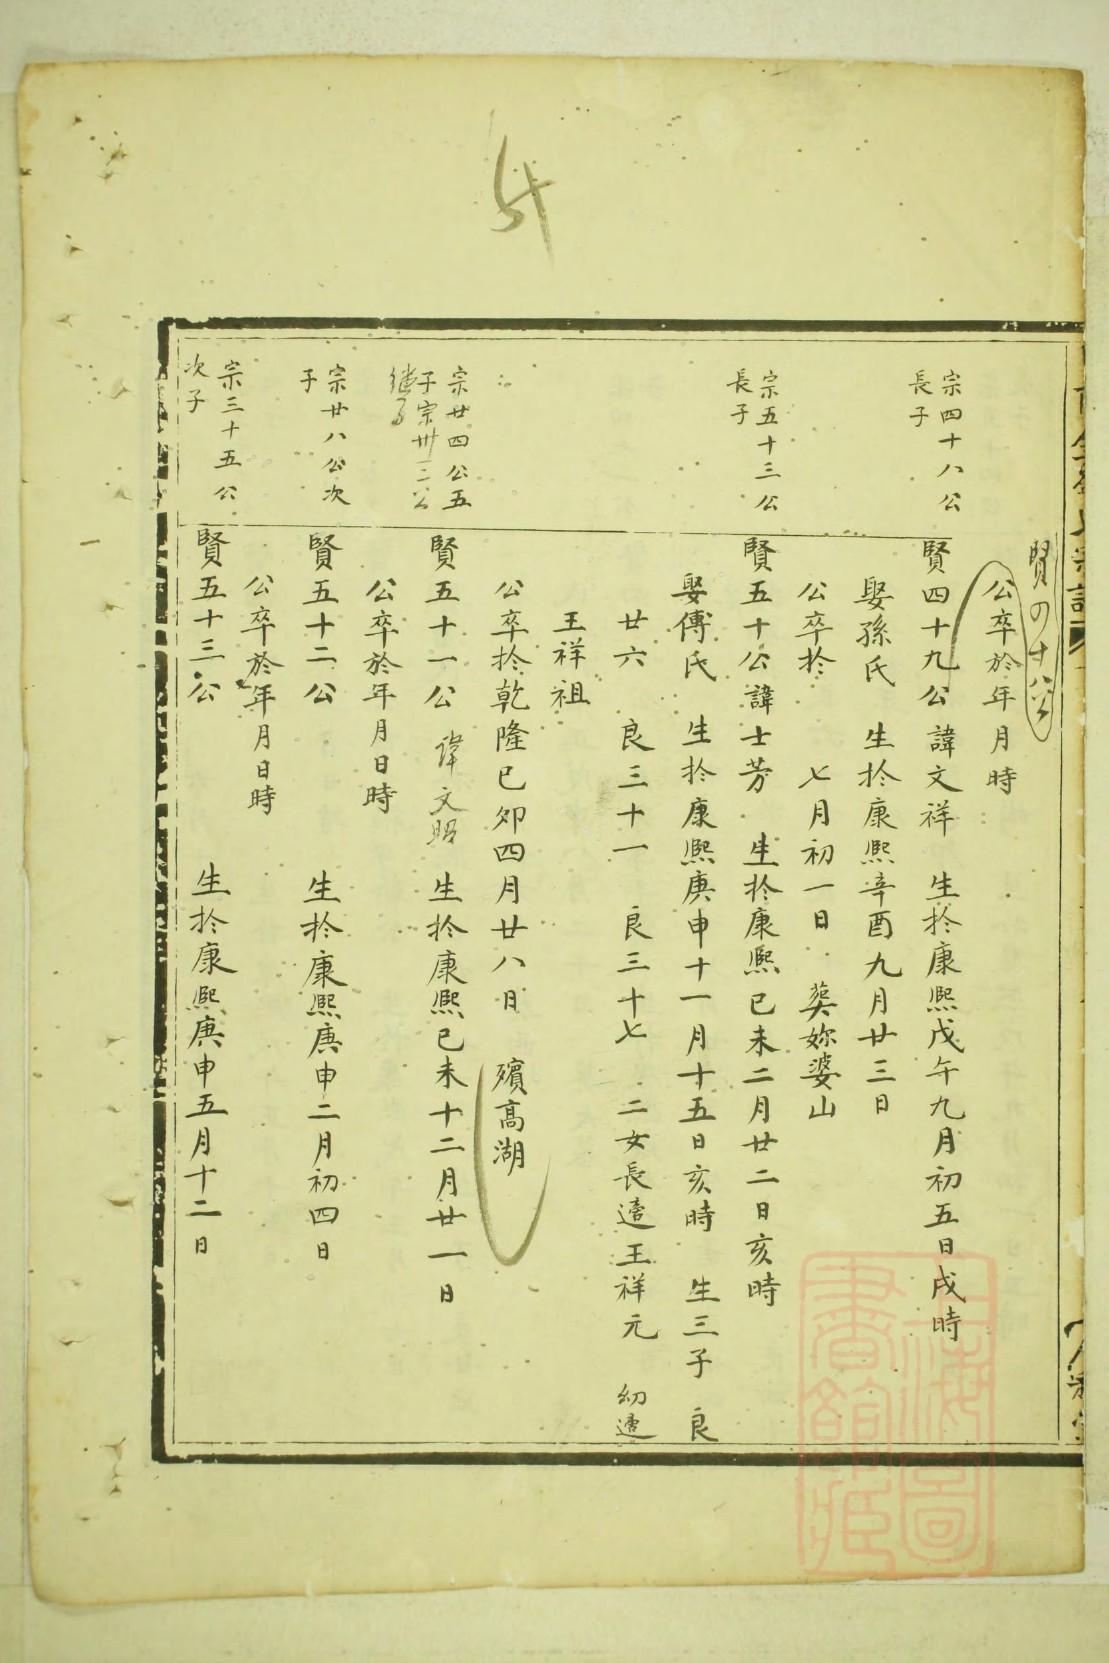 賢四十八公
公卒於年月時
宗四十八公
長子
賢四十九公諱文祥 生扵康熙戊午九月初五日戌時
娶孫氏 生扵康熙辛酉九月廿三日
公卒扵 七月初一日 葬妳婆山
宗五十三公
長子
賢五十公諱士芳 生扵康熙已未二月廿二日亥時
娶傅氏 生扵康熙庚申十一月十五日亥時 生三子 良
廿六 良三十一 良三十七 二女長適王祥元 幼適
王祥祖
公卒扵乾隆已卯四月廿八日 殯高湖
宗廿四公五
子宗卅三公
继子
賢五十一公 諱文照 生扵康熙已未十二月廿一日
公卒於年月日時
宗廿八公次
子
賢五十二公 生扵康熙庚申二月初四日
公卒於年月日時
宗三十五公
次子
賢五十三公 生扵康熙庚申五月十二日
上海圖
書館藏